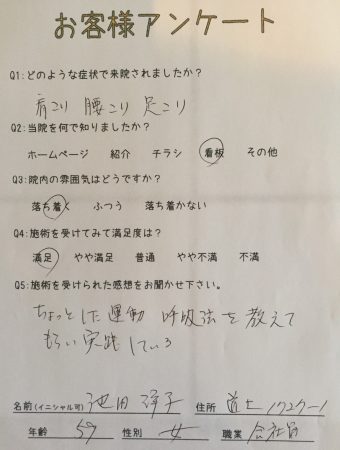 お客様アンケート
Q1:どのような症状で来院されましたか?
肩こり 腰こり 足こり
Q2:当院を何で知りましたか?
ホームページ 紹介 チラシ 看板 その他
Q3:院内の雰囲気はどうですか?
落ち着く ふつう 落ち着かない
Q4:施術を受けてみて満足度は?
満足 やや満足 普通 やや不満 不満
Q5:施術を受けられた感想をお聞かせ下さい。
ちょっとした運動 呼吸法を教えて
もらい実践している
名前(イニシャル可) 池田 洋子 住所 道上1727-1
年齢 59 性別 女 職業 会社員